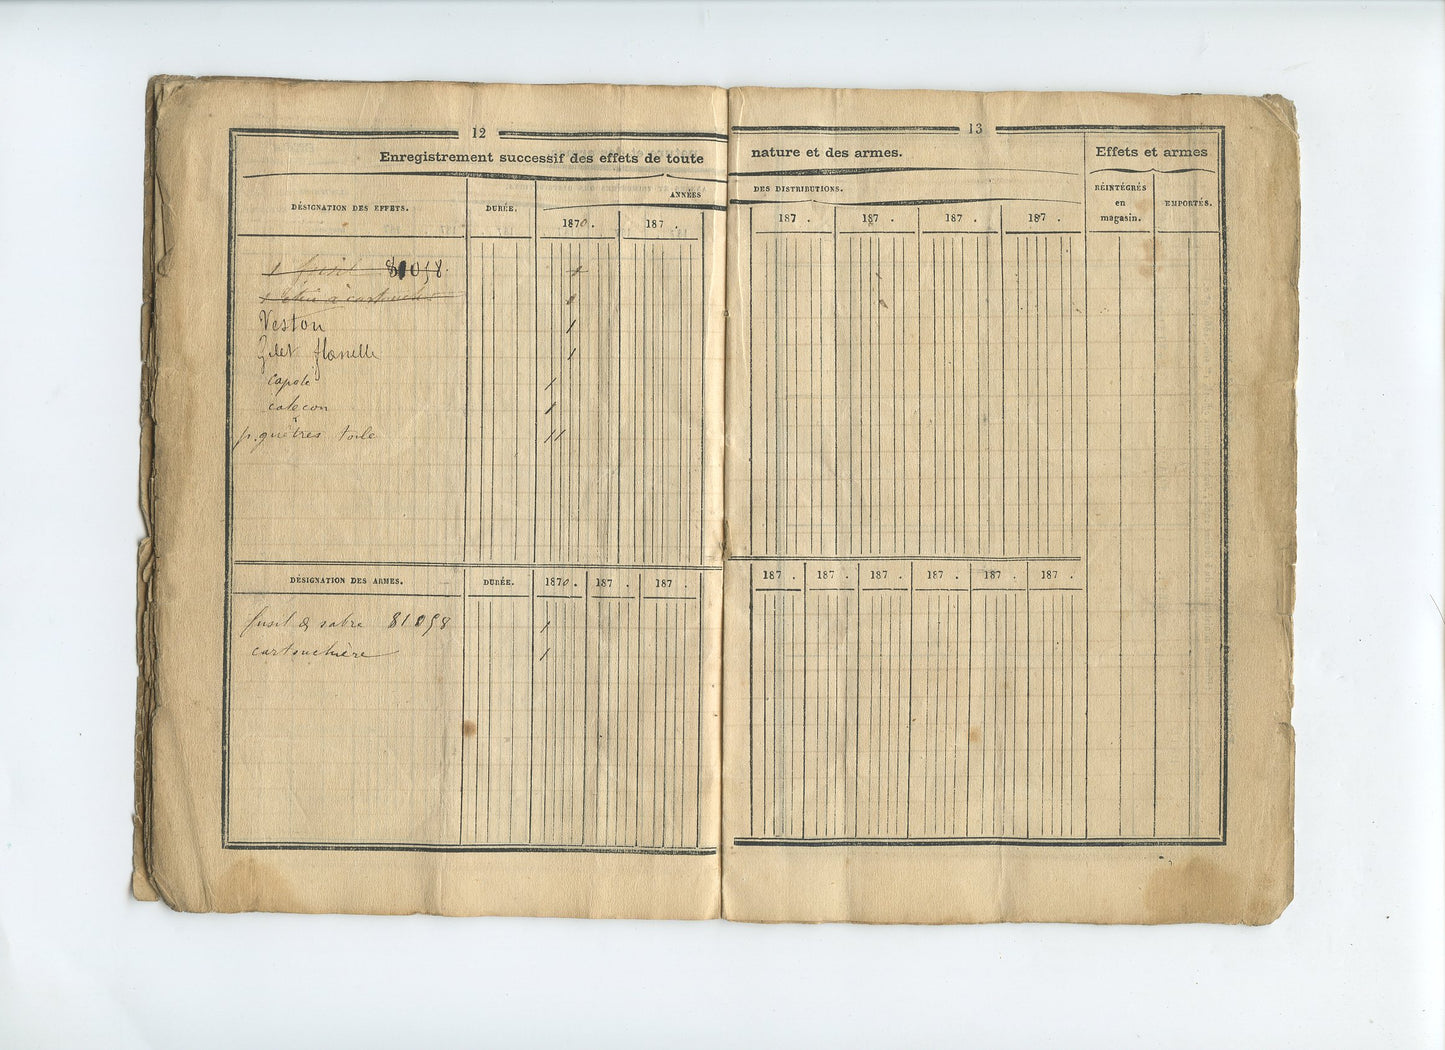 12
13
Enregistrement successif des effets de toute nature et des armes.
Effets et armes
DÉSIGNATION DES EFFETS.
DURÉE.
ANNÉES DES DISTRIBUTIONS.
RÉINTÉGRÉS
en
magasin.
EMPORTÉS.
1870. 187 . 187 . 187 . 187 . 187 .
1 fusil 81058. 1
1 à cartouche 1
Veston 1
Gilet flanelle 1
capote 1
caleçon 1
p. guêtres toile 11
DÉSIGNATION DES ARMES. DURÉE. 1870. 187 . 187 . 187 . 187 . 187 . 187 . 187 . 187 .
fusil & sabre 81058 1
cartouchière 1